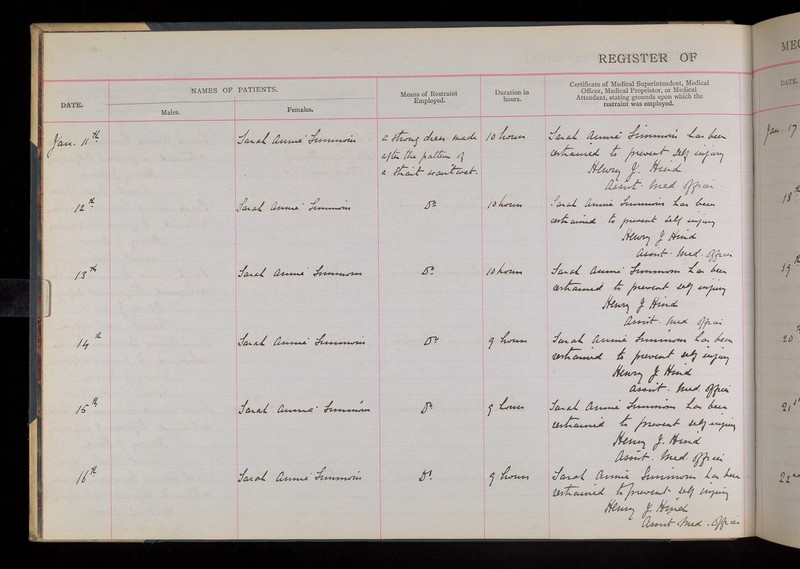 REGISTER OF
NAMES OF PATIENTS.
DATE.
Males.
Females.
Means of Restraint
Employed.
Duration in
hours.
Certificate of Medical Superintendent, Medical
Officer, Medical Proprietor, or Medical
Attendant, stating grounds upon which the
restraint was employed.
Jan. 11th Sarah Annie Simmons a strong dress made 10 hours Sarah Annie Simmons has been
after the pattern of restrained to prevent self injury
a strait waistcoat. Henry J. Hind
Assist. Med Officer
12th Sarah Annie Simmons Do 10 hours Sarah Annie Simmons has been
restrained to prevent self injury
Henry J Hind
Assist. Med. Officer
13th Sarah Annie Simmons Do 10 hours Sarah Annie Simmons has been
restrained to prevent self injury
Henry J Hind
Assist. Med Officer
14th Sarah Annie Simmons Do 9 hours Sarah Annie Simmons has been
restrained to prevent self injury
Henry J. Hind
Assist. Med Officer
15th Sarah Annie Simmons Do 9 hours Sarah Annie Simmons has been
restrained to prevent self injury
Henry J. Hind
Assist. Med. Officer
16th Sarah Annie Simmons Do 9 hours Sarah Annie Simmons has been
restrained to prevent self injury
Henry J. Hind
Assist Med. Officer
DATE.
Jan. 17
18th
19th
20
21st
22nd